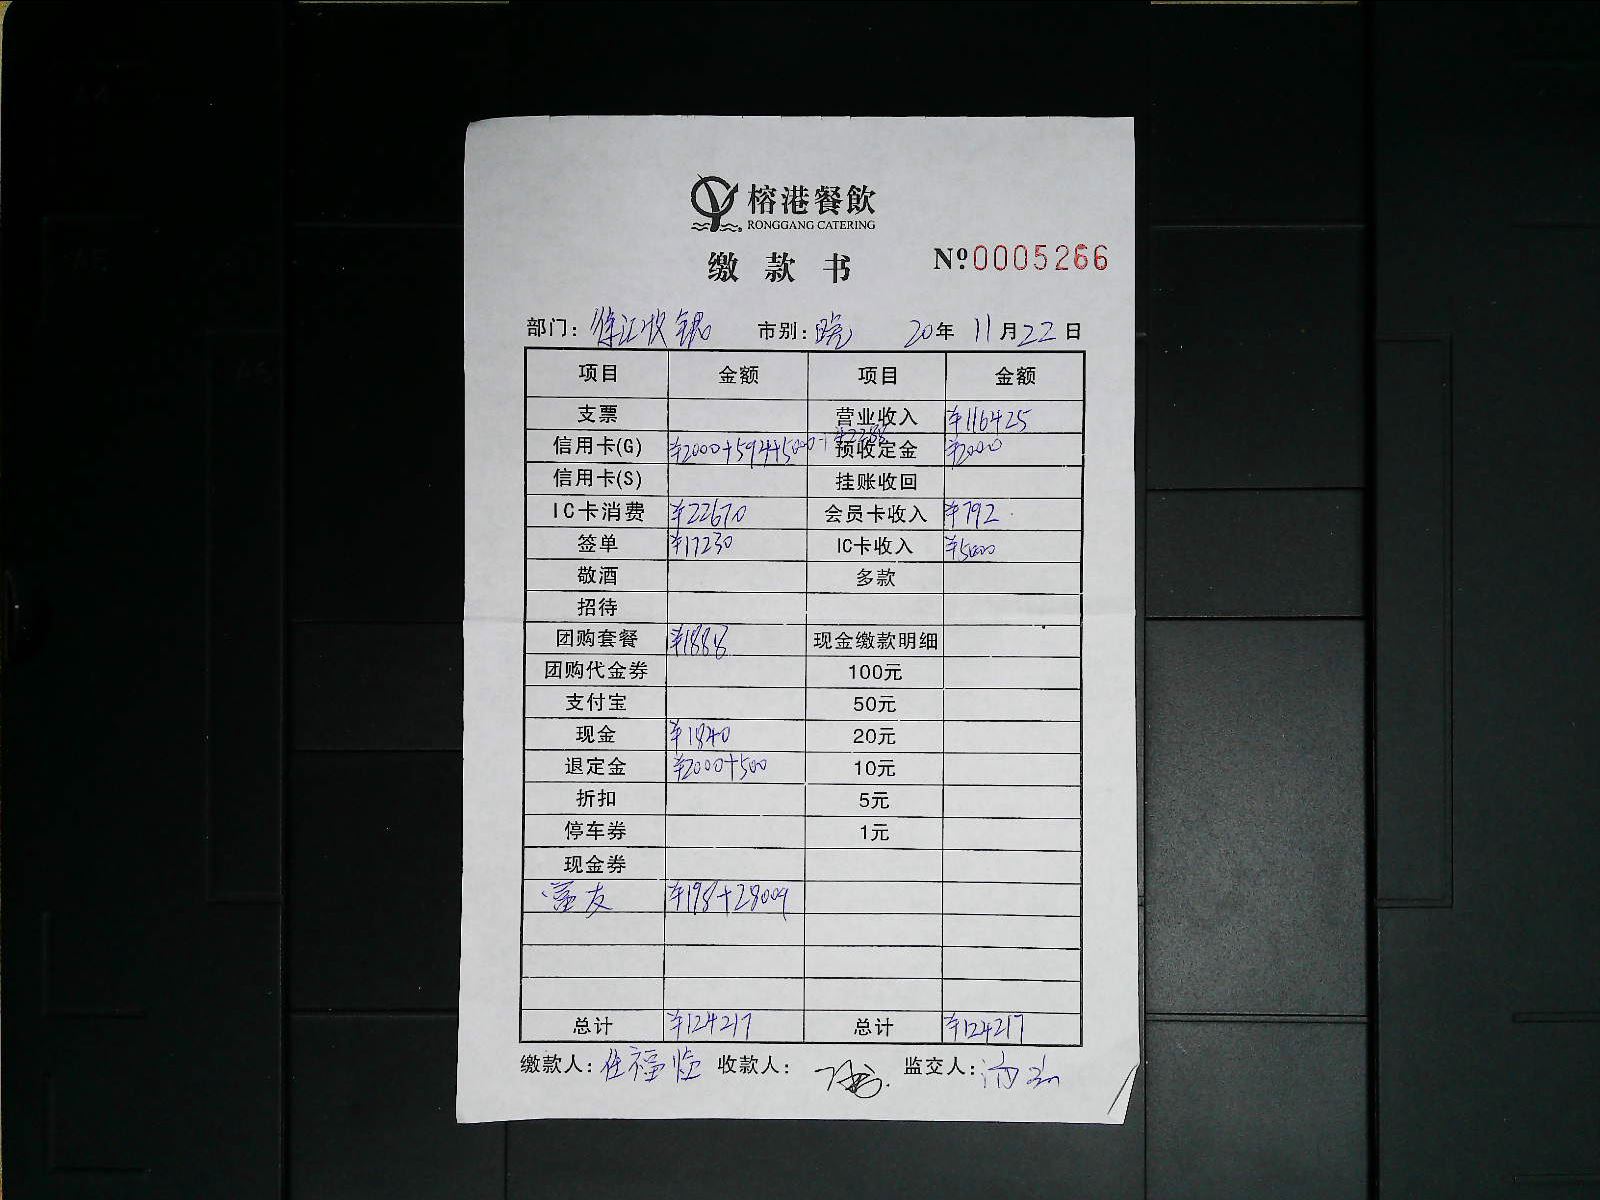 榕港餐飲
RONGGANG CATERING
缴款书
№0005266
部门: 徐汇收银 市别: 晚 20年 11月22日
项目 金额 项目 金额
支票 营业收入 ¥116425
信用卡(G) ¥2000+594+5000+ 预收定金 ¥2000
信用卡(S) 挂账收回
IC卡消费 ¥22670 会员卡收入 ¥792
签单 ¥17230 IC卡收入 ¥5000
敬酒 多款
招待
团购套餐 ¥1888 现金缴款明细
团购代金券 100元
支付宝 50元
现金 ¥1840 20元
退定金 ¥2000+500 10元
折扣 5元
停车券 1元
现金券
¥198+28009
总计 ¥124217 总计 ¥124217
缴款人: 任福临 收款人: 监交人: